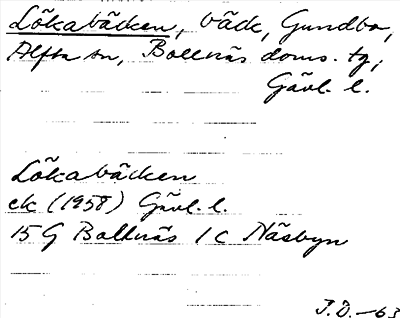 Lökabäcken, bäck, Gundbo,
Alfta sn, Bollnäs doms. tg,
Gävl. l.
Lökabäcken
ek (1958) Gävl. l.
15 G Bollnäs 1 c Näsbyn
J.D.-63